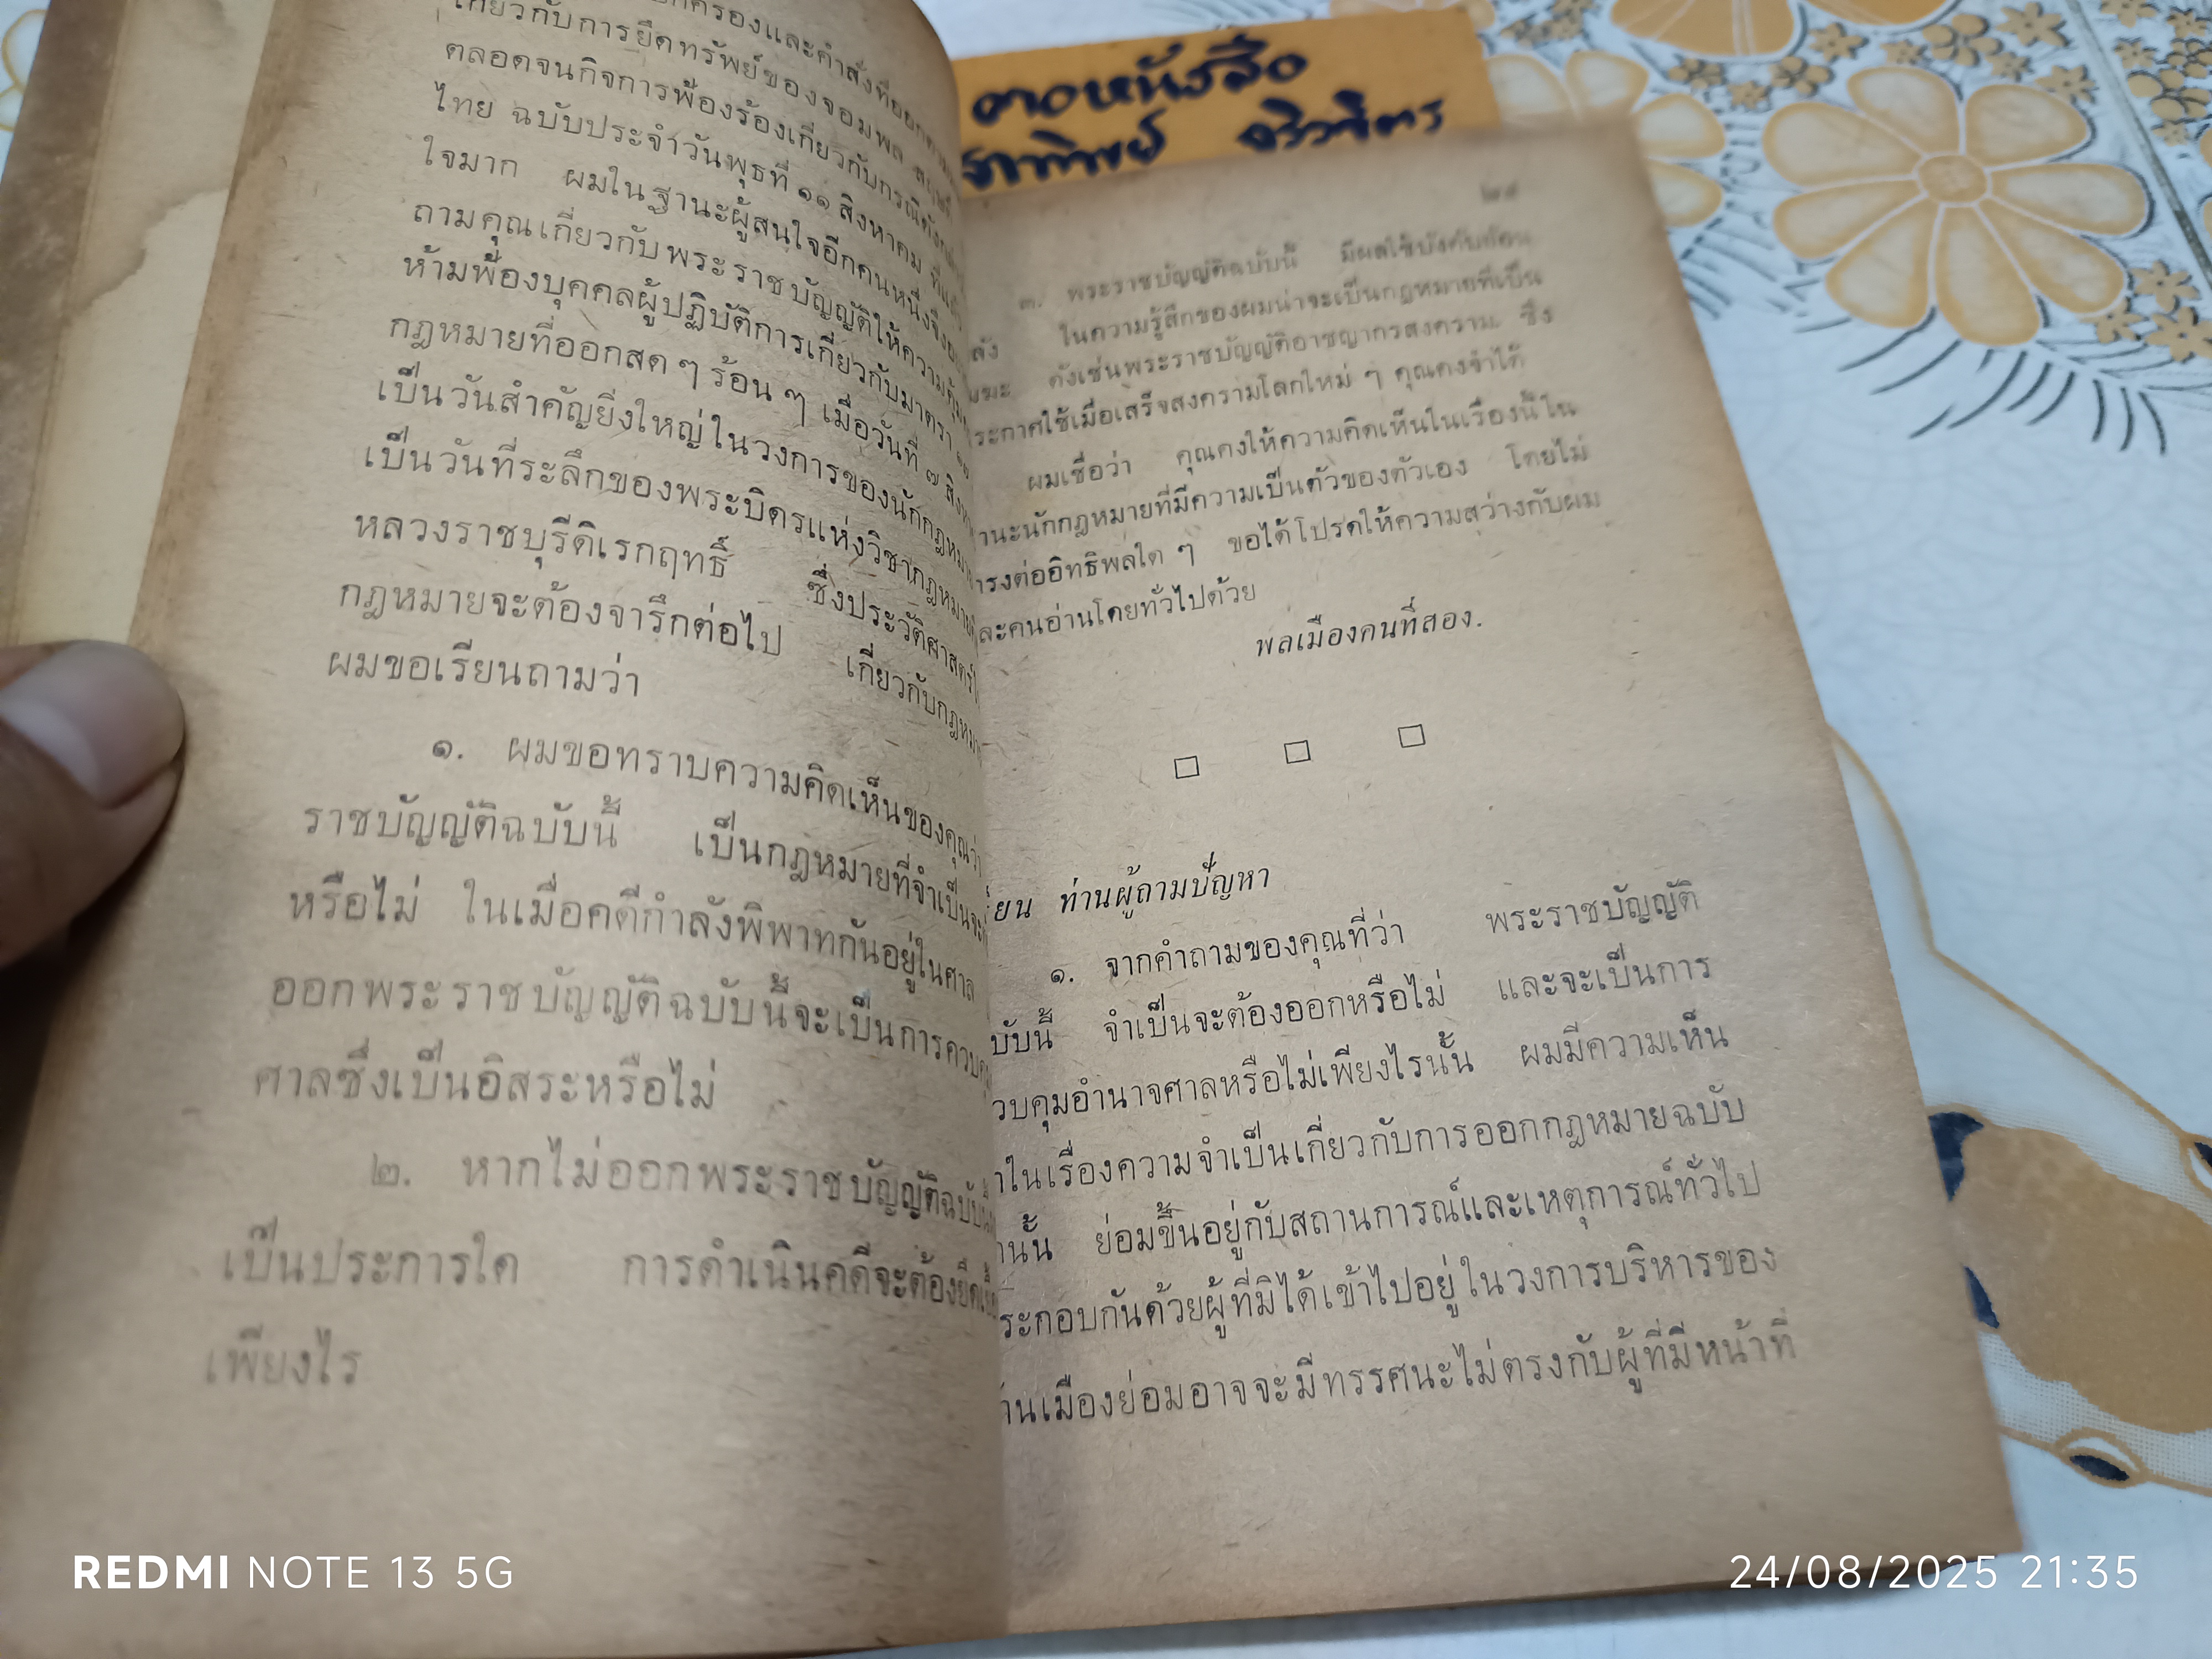 กครองและคำสั่งที่ออกตาม
เกี่ยวกับการยึดทรัพย์ของจอมพล
ตลอดจนกิจการฟ้องร้องเกี่ยวกับกรณีดังกล่าว
ไทย ฉบับประจำวันพุธที่ ๑๑ สิงหาคม ที่แล้ว
ใจมาก ผมในฐานะผู้สนใจอีกคนหนึ่งจึงขอ
ถามคุณเกี่ยวกับพระราชบัญญัติให้ความคุ้ม
ห้ามฟ้องบุคคลผู้ปฏิบัติการเกี่ยวกับมาตรา ๑๗
กฎหมายที่ออกสด ๆ ร้อน ๆ เมื่อวันที่ ๗ สิงหา
เป็นวันสำคัญยิ่งใหญ่ในวงการของนักกฎหมาย
เป็นวันที่ระลึกของพระบิดรแห่งวิชากฎหมาย
หลวงราชบุรีดิเรกฤทธิ์ ซึ่งประวัติศาสตร์
กฎหมายจะต้องจารึกต่อไป เกี่ยวกับกฎหมา
ผมขอเรียนถามว่า
๑. ผมขอทราบความคิดเห็นของคุณว่า
ราชบัญญัติฉบับนี้ เป็นกฎหมายที่จำเป็นจะ
หรือไม่ ในเมื่อคดีกำลังพิพาทกันอยู่ในศาล
ออกพระราชบัญญัติฉบับนี้จะเป็นการควบคุม
ศาลซึ่งเป็นอิสระหรือไม่
๒. หากไม่ออกพระราชบัญญัติฉบับนี้
เป็นประการใด การดำเนินคดีจะต้องยืดเยื้อ
เพียงไร
ถาดหนังสือ
๒๙
๓. พระราชบัญญัติฉบับนี้ มีผลใช้บังคับย้อน
ลัง ในความรู้สึกของผมน่าจะเป็นกฎหมายที่เป็น
ดังเช่นพระราชบัญญัติอาชญากรสงคราม ซึ่ง
ระกาศใช้เมื่อเสร็จสงครามโลกใหม่ ๆ คุณคงจำได้
ผมเชื่อว่า คุณคงให้ความคิดเห็นในเรื่องนี้ใน
านะนักกฎหมายที่มีความเป็นตัวของตัวเอง โดยไม่
กรงต่ออิทธิพลใด ๆ ขอได้โปรดให้ความสว่างกับผม
ละคนอ่านโดยทั่วไปด้วย
พลเมืองคนที่สอง.
ยน ท่านผู้ถามปัญหา
๑. จากคำถามของคุณที่ว่า พระราชบัญญัติ
บับนี้ จำเป็นจะต้องออกหรือไม่ และจะเป็นการ
วบคุมอำนาจศาลหรือไม่เพียงไรนั้น ผมมีความเห็น
าในเรื่องความจำเป็นเกี่ยวกับการออกกฎหมายฉบับ
นั้น ย่อมขึ้นอยู่กับสถานการณ์และเหตุการณ์ทั่วไป
ระกอบกันด้วยผู้ที่มิได้เข้าไปอยู่ในวงการบริหารของ
้านเมืองย่อมอาจจะมีทรรศนะไม่ตรงกับผู้ที่มีหน้าที่
REDMI NOTE 13 5G
24/08/2025 21:35